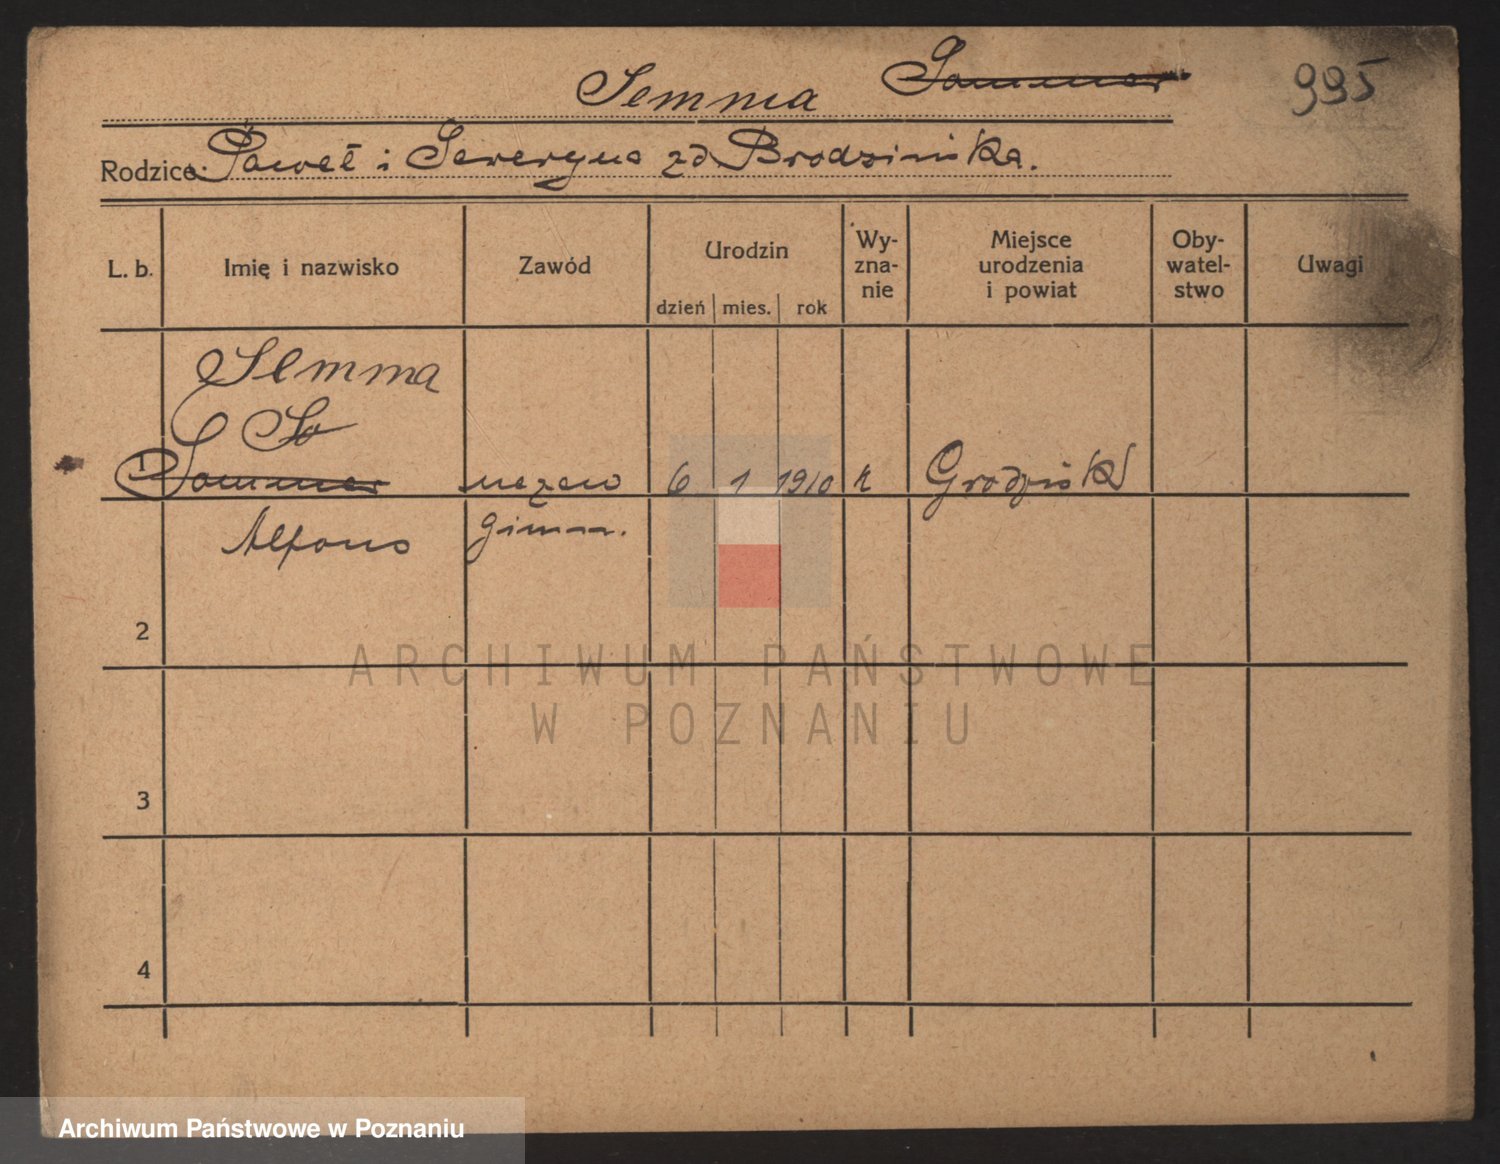 Semma Sommer 995
Rodzice: Paweł i Seweryna zd Brodzińska.
L. b. Imię i nazwisko Zawód Urodzin dzień mies. rok Wy- zna- nie Miejsce urodzenia i powiat Oby- watel- stwo Uwagi
Semma
So
1 Sommer uczeń 6 1 1910 k Grodzisk
Alfons gimn.
2
ARCHIWUM PAŃSTWOWE
W POZNANIU
3
4
Archiwum Państwowe w Poznaniu